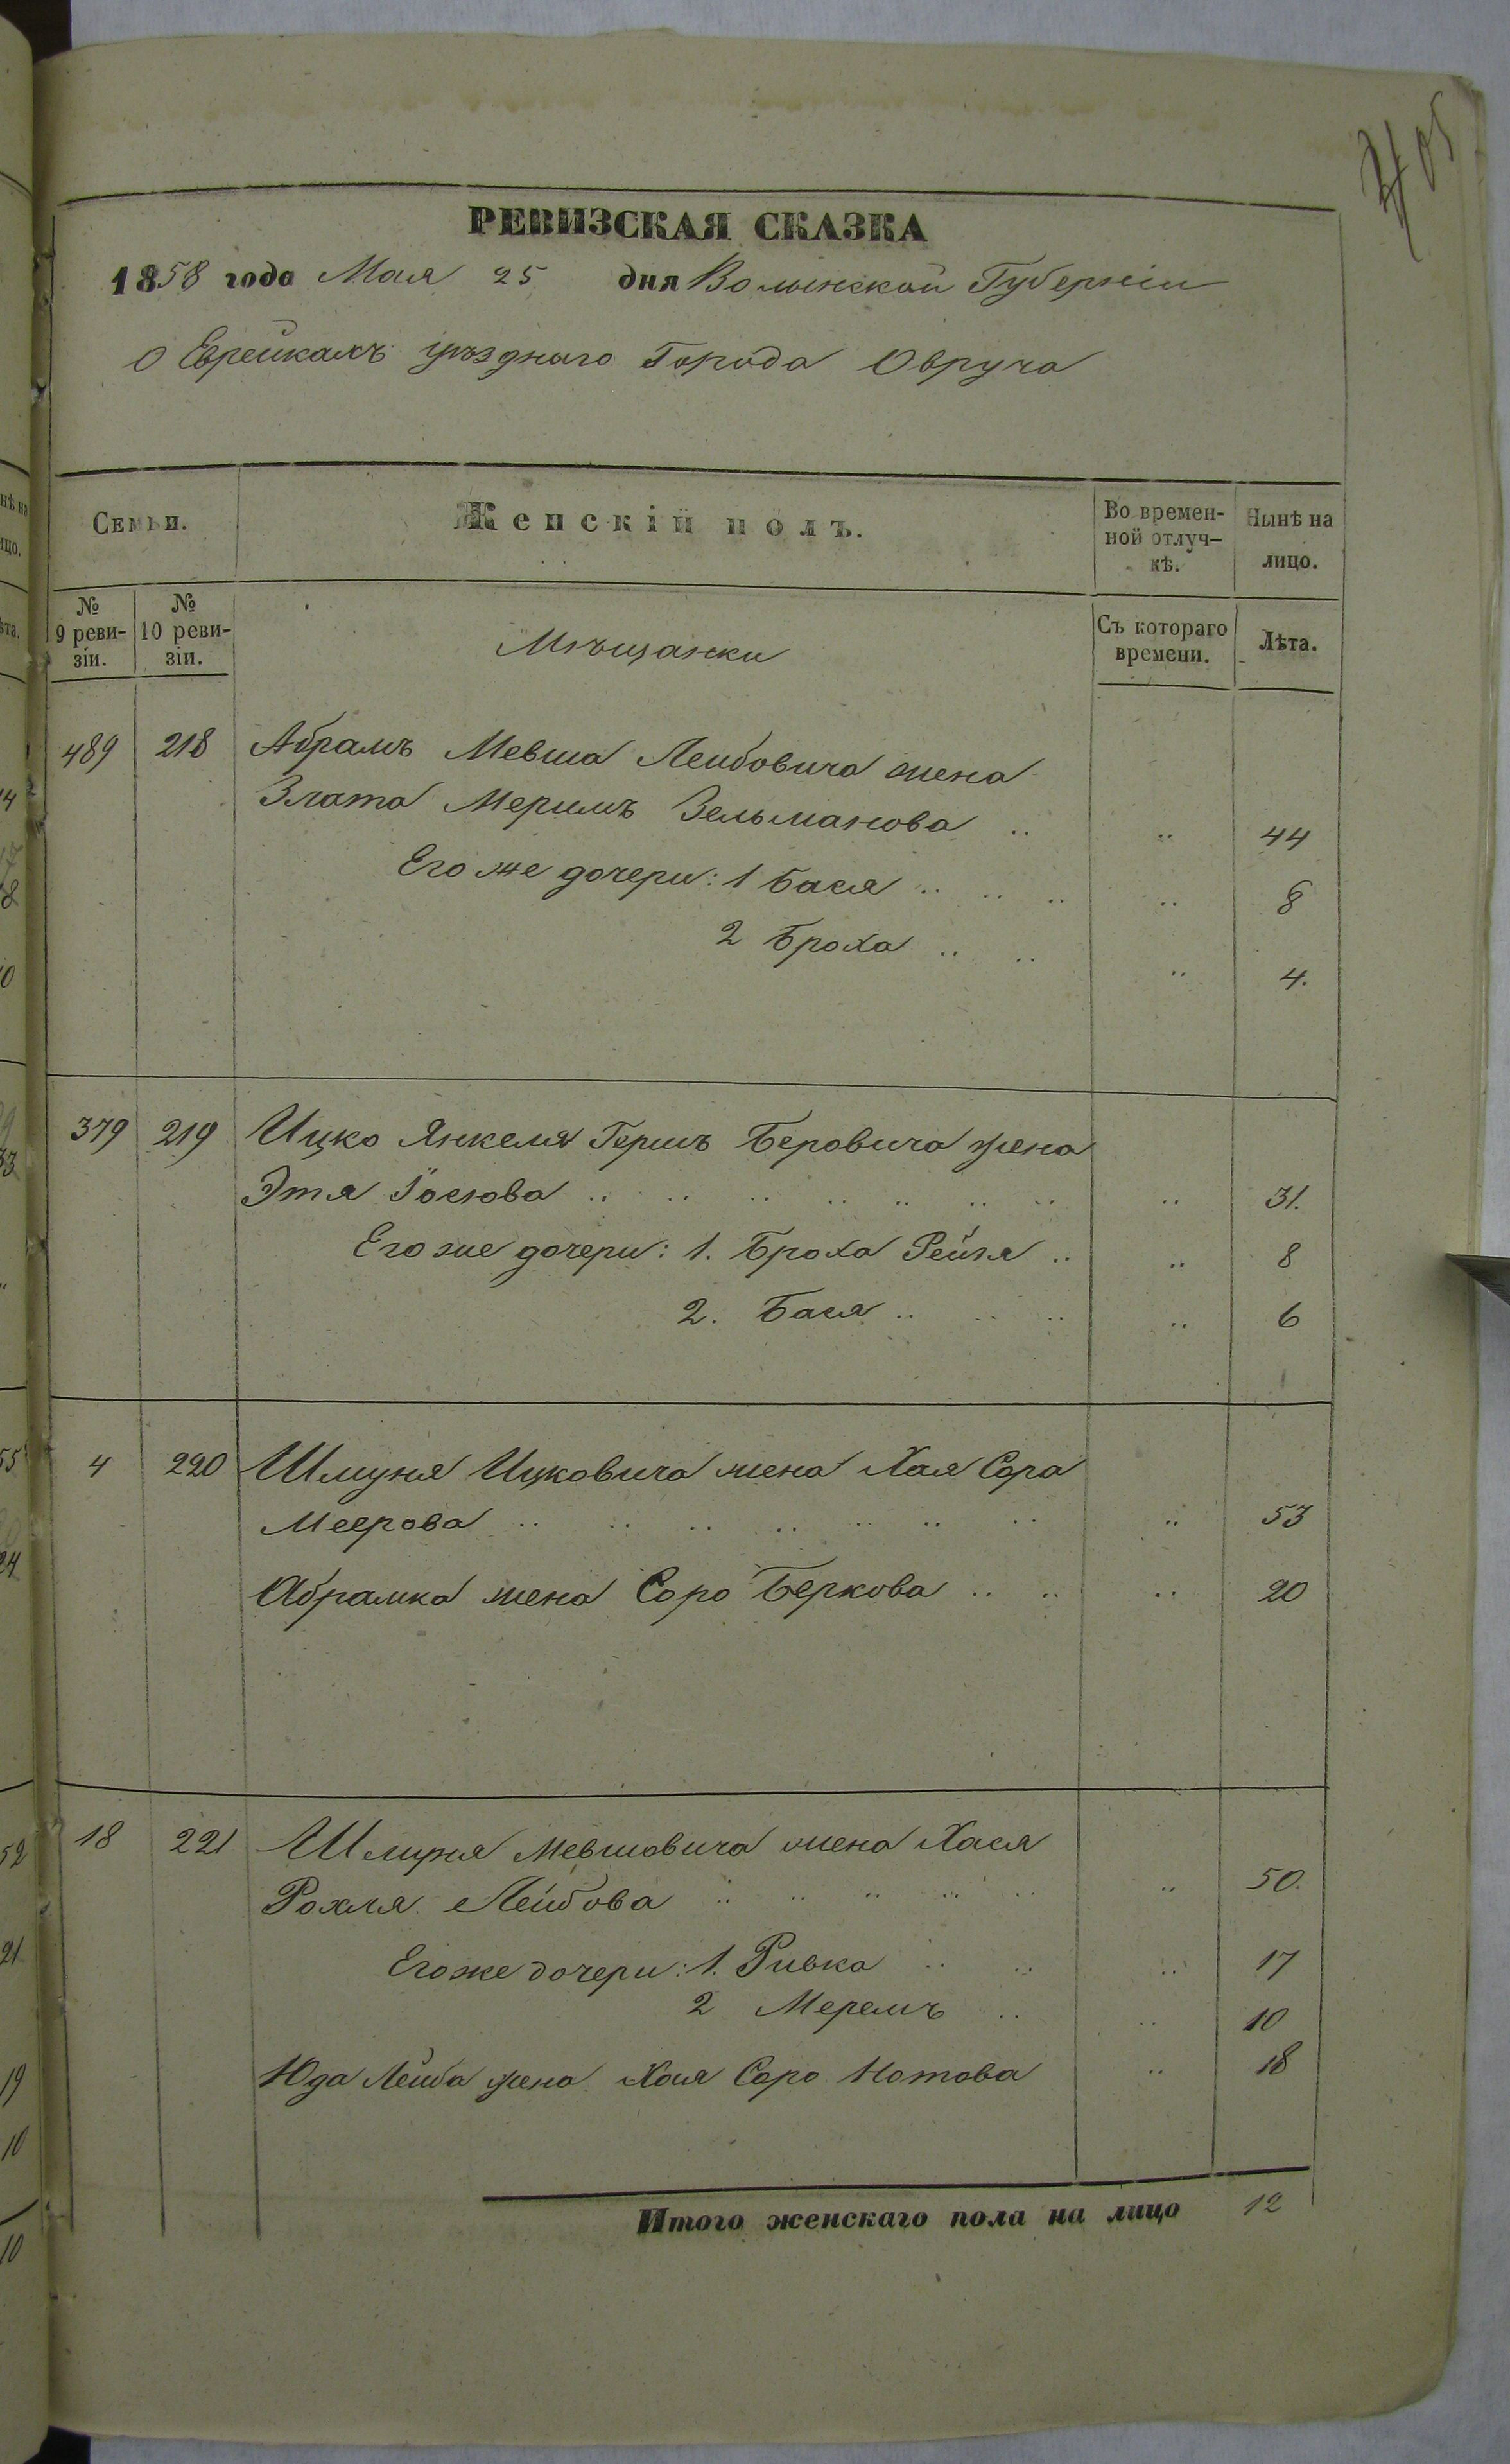 405
РЕВИЗСКАЯ СКАЗКА
1858 года Мая 25 дня Волынской Губерніи
О Еврейкахъ уѣзднаго Города Овруча
Семьи.
Женскій полъ.
Во времен-
ной отлуч-
кѣ.
Нынѣ на
лицо.
№
9 реви-
зіи.
№
10 реви-
зіи.
Мѣщанки
Съ котораго
времени.
Лѣта.
489 218 Абрамъ Мевша Лейбовича жена
Злата Меримъ Зельманова .. .. 44
Его же дочери: 1 Бася .. .. .. .. 8
2 Броха .. .. .. 4.
379 219 Ицко Янкеля Гершъ Беровича жена
Этя Іосіова .. .. .. .. .. .. .. .. 31.
Его же дочери: 1. Броха Рейзя .. .. 8
2. Бася .. .. .. .. 6
4 220 Шмуня Ицковича жена Хая Сора
Меерова .. .. .. .. .. .. .. .. 53
Абрамка жена Соро Беркова .. .. .. 20
18 221 Шмуня Мевшовича жена Хася
Рохля Лейбова .. .. .. .. .. .. 50.
Его же дочери: 1. Ривка .. .. .. 17
2 Меремъ .. .. 10
Юда Лейба жена Хая Соро Нотова .. 18
Итого женскаго пола на лицо 12